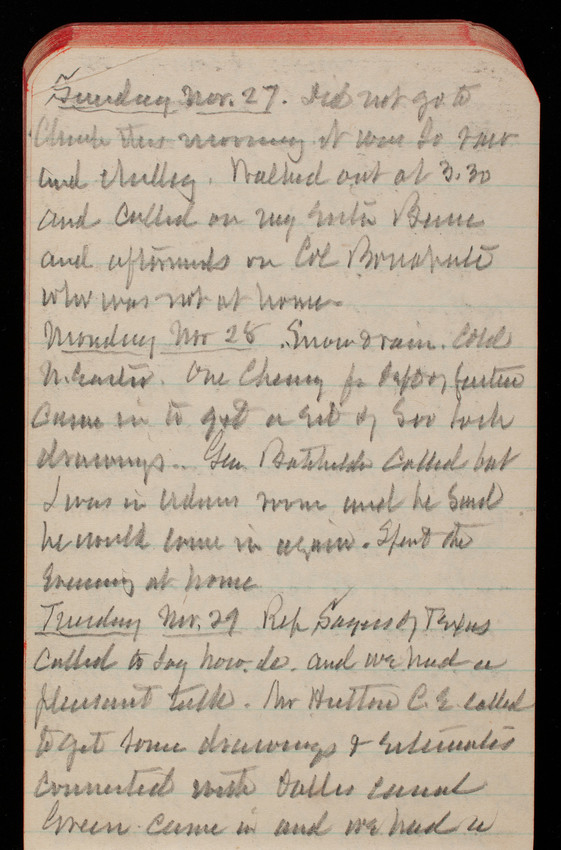 Sunday Nov. 27. Did not go to
Church this morning it was so raw
and chilly. Walked out at 3.30
and called on my sister Bessie
and afterwards on Col Bonaparte
who was not at home.
Monday Nov 28. Snow & rain. Cold
N. Easter. One Cheney fr Dept of Justice
came in to get a set of Soo lock
drawings. Gen Batchelder called but
I was in Adams room and he said
he would come in again. Spent the
Evening at home
Tuesday Nov. 29 Rep Sayers of Texas
called to say how. do. and we had a
pleasant talk. Mr Hutton C. E. called
to get some drawings & Estimates
connected with Dalles canal
Green came in and we had a